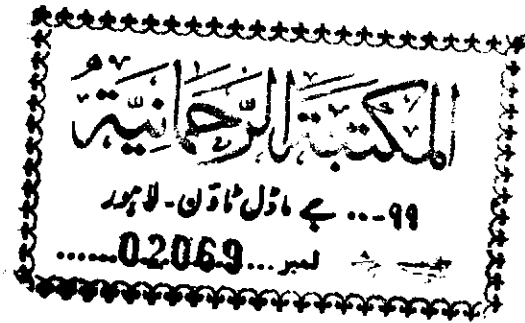 المكتبة الرحمانية
۹۹... جے ماڈل ٹاؤن۔ لاہور
نمبر...02069......